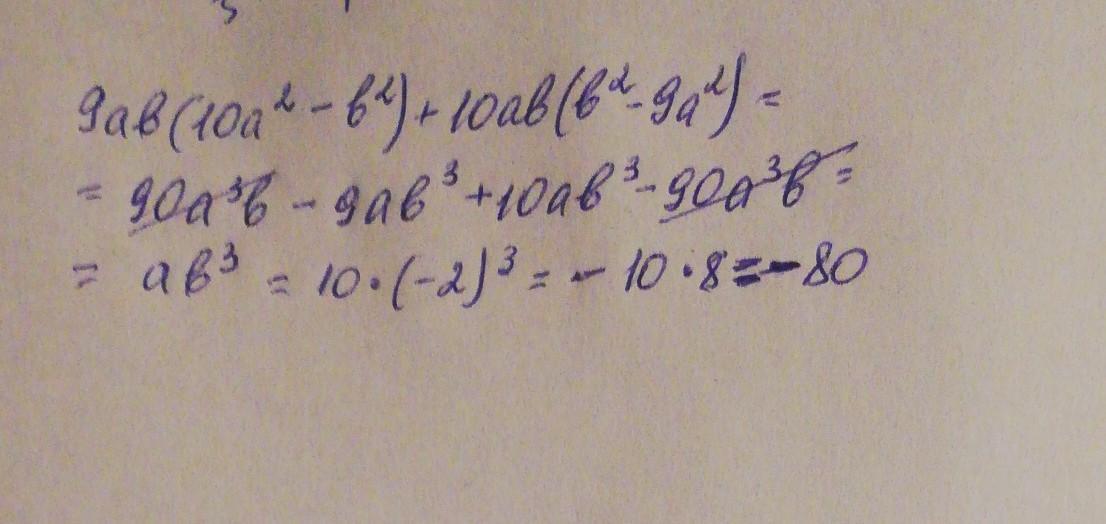 9ab(10a² - b²) + 10ab(b² - 9a²) =
= 90a³b - 9ab³ + 10ab³ - 90a³b =
= ab³ = 10 · (-2)³ = - 10 · 8 = -80